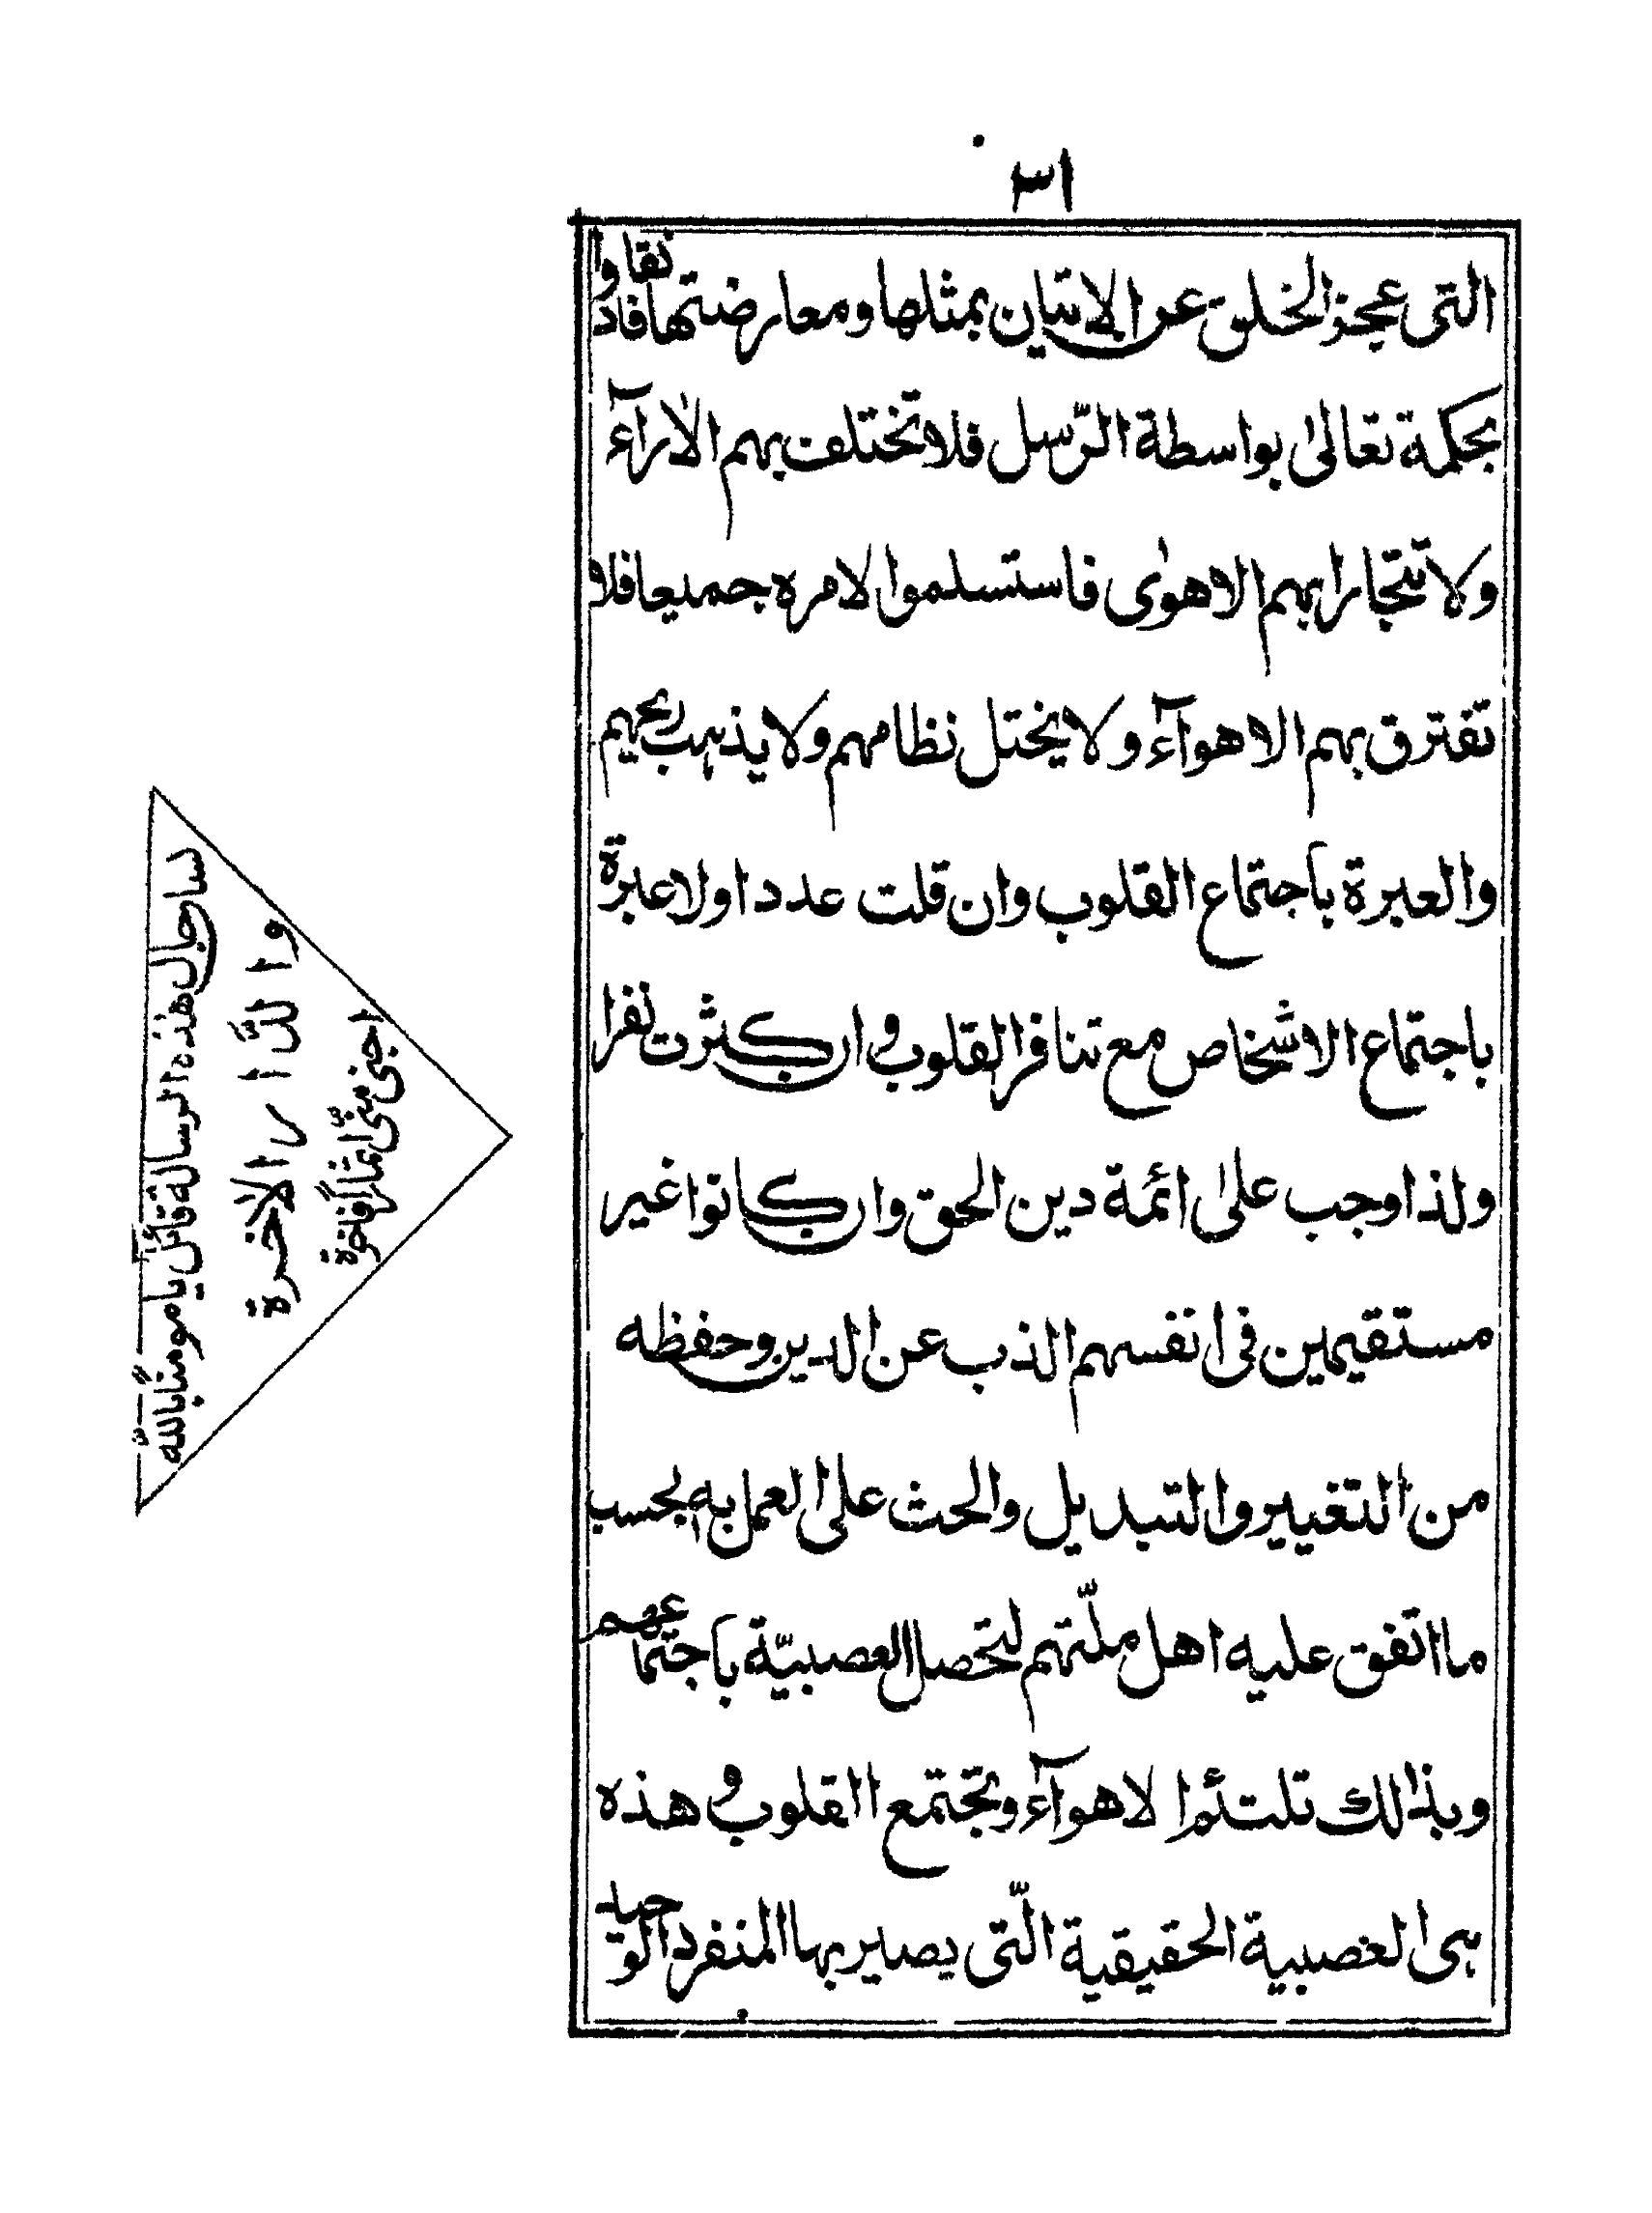 ٣١
التى عجز الخلق عن الاتيان بمثلها ومعارضتها فانقادوا
بحكمة تعالىٰ بواسطة الرّسل فلا تختلف بهم الاٰرآء
ولا تتجارا بهم الاهوٰى فاستسلموا لامره جميعا فلا
تفترق بهم الاهوآء ولا يختل نظامهم ولا يذهب ريحهم
والعبرة باجتماع القلوب وان قلت عددا ولا عبرة
باجتماع الاشخاص مع تنافر القلوب وان كثرت نفرا
ولذا وجب علىٰ ائمة دين الحق وان كانوا غير
مستقيمين فى انفسهم الذب عن الدين وحفظه
من التغيير والتبديل والحث على العمل به بحسب
ما اتفق عليه اهل ملّتهم لتحصل العصبيّة باجتماعهم
وبذالك تلتئم الاهوآء وتجتمع القلوب وهذه
هى العصبية الحقيقية الّتى يصير بها المنفرد الوحيد
اجنبى
والدّار الاخرة
هذه الرسالة قائل يا مومنًا باللّه